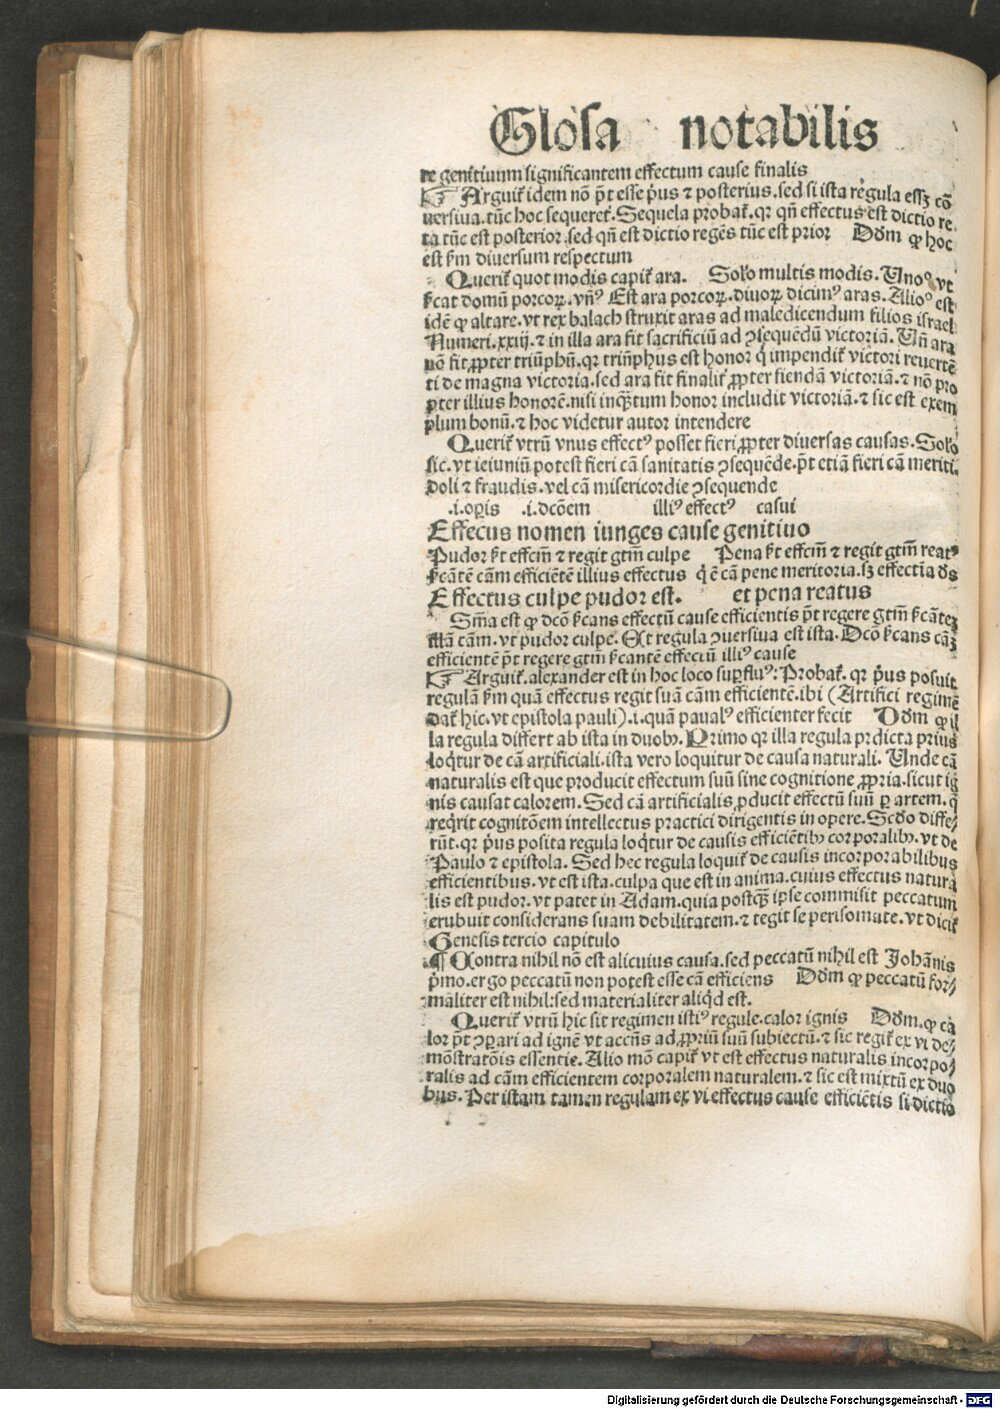 Glosa notabilis
re genitiuum significantem effectum cause finalis
☞ Arguit̃ idem nō p̄t esse p̓us ⁊ posterius. sed si ista regula essꝫ cō
uersiua. tūc hoc sequeret̃. Sequela probat̃. qꝛ qn̄ effectus est dictio re
cta tūc est posterior. sed qn̄ est dictio regēs tūc est prior Dōm ꝙ hoc
est s̄m diuersum respectum
Querit̃ quot modis capit̃ ara. Solo multis modis. Uno° vt
s̄cat domū porcoꝝ. vn̄ꝰ Est ara porcoꝝ. diuoꝝ dicimꝰ aras. Alio° est
idē ꝙ altare. vt rex balach struxit aras ad maledicendum filios israel
Numeri. xxiij. ⁊ in illa ara fit sacrificiū ad ꝯsequēdū victoriā. Un̄ ara
nō fit ꝓpter triūphū. qꝛ triūphus est honor q̓ impendit̃ victori reuertē
ti de magna victoria. sed ara fit finalit̃ ꝓpter fiendā victoriā. ⁊ nō pro
pter illius honorē. nisi inqꝫtum honor includit victoriā. ⁊ sic est exem
plum bonū. ⁊ hoc videtur autor intendere
Querit̃ vtrū vnus effectꝰ posset fieri ꝓpter diuersas causas. Solo
sic. vt ieiuniū potest fieri cā sanitatis ꝯsequēde. p̄t etiā fieri cā meriti.
doli ⁊ fraudis. vel cā misericordie ꝯsequende
.i. oꝑis .i. dcōem illiꝰ effectꝰ casui
Effecus nomen iunges cause genitiuo
Pudor s̄t effcm̄ ⁊ regit gtm̄ culpe Pena s̄t effcm̄ ⁊ regit gtm̄ reatꝰ
s̄cātē cām efficiētē illius effectus q̓ ē cā pene meritoria. sꝫ effectia ds
Effectus culpe pudor est. et pena reatus
Sm̄a est ꝙ dcō s̄cans effectū cause efficientis p̄t regere gtm̄ s̄cātē
illā cām. vt pudor culpe. Et regula ꝯuersiua est ista. Dcō s̄cans cāꝫ
efficientē p̄t regere gtm̄ s̄cantē effectū illiꝰ cause
☞ Arguit̃. alexander est in hoc loco suꝑfluꝰ: Probat̃. qꝛ p̓us posuit
regulā s̄m quā effectus regit suā cām efficientē. ibi (Artifici regimē
dat̃ hic. vt epistola pauli) .i. quā paualꝰ efficienter fecit Dōm ꝙ il
la regula differt ab ista in duobꝫ. Primo qꝛ illa regula pꝛdicta prius
loq̄tur de cā artificiali. ista vero loquitur de causa naturali. Unde cā
naturalis est que producit effectum suū sine cognitione ꝓpria. sicut ig
nis causat calorem. Sed cā artificialis ꝓducit effectū suū ꝑ artem. q̄
req̓rit cognitōem intellectus practici dirigentis in opere. Scdo diffe⸗
rūt. qꝛ p̓us posita regula loq̄tur de causis efficiētibꝫ corporalibꝫ. vt de
Paulo ⁊ epistola. Sed hec regula loquit̃ de causis incorporabilibus
efficientibus. vt est ista. culpa que est in anima. cuius effectus natura
lis est pudor. vt patet in Adam. quia postqꝫ ipse commisit peccatum
erubuit considerans suam debilitatem. ⁊ tegit se perisomate. vt dicit̃
Genesis tercio capitulo
¶ Contra nihil nō est alicuius causa. sed peccatū nihil est Johānis
p̓mo. ergo peccatū non potest esse cā efficiens Dōm ꝙ peccatū for⸗
maliter est nihil: sed materialiter aliq̓d est.
Querit̃ vtrū hic sit regimen istiꝰ regule. calor ignis Dōm. ꝙ ca
lor p̄t ꝯꝑari ad ignē vt accn̄s ad ꝓpriū suū subiectū. ⁊ sic regit̃ ex vi de⸗
mōstratōis essentie. Alio mō capit̃ vt est effectus naturalis incorpo⸗
ralis ad cām efficientem corporalem naturalem. ⁊ sic est mixtū ex duo
bus. Per istam tamen regulam ex vi effectus cause efficiētis si dictio
Digitalisierung gefördert durch die Deutsche Forschungsgemeinschaft - DFG